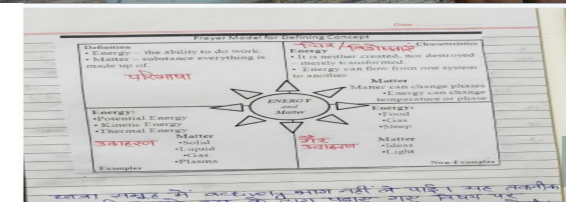 Frayer Model for Defining Concept
Definition
• Energy – the ability to do work.
• Matter – substance everything is
made up of.
परिभाषा
चित्र / विशेषताएँ
Characteristics
Energy
• It is neither created, nor destroyed
– merely transformed.
• Energy can flow from one system
to another.
Matter
Matter can change phases
• Energy can change
temperature or phase
ENERGY
and
Matter
Energy:
•Potential Energy
•Kinetic Energy
•Thermal Energy
उदाहरण
Matter
•Solid
•Liquid
•Gas
•Plasma
Examples
Energy:
•Food
•Gas
•Sleep
गैर
उदाहरण
Matter
•Ideas
•Light
Non-Examples
छात्रा समूह में actively भाग नहीं ले पाई। यह तकनीक
विषय पर